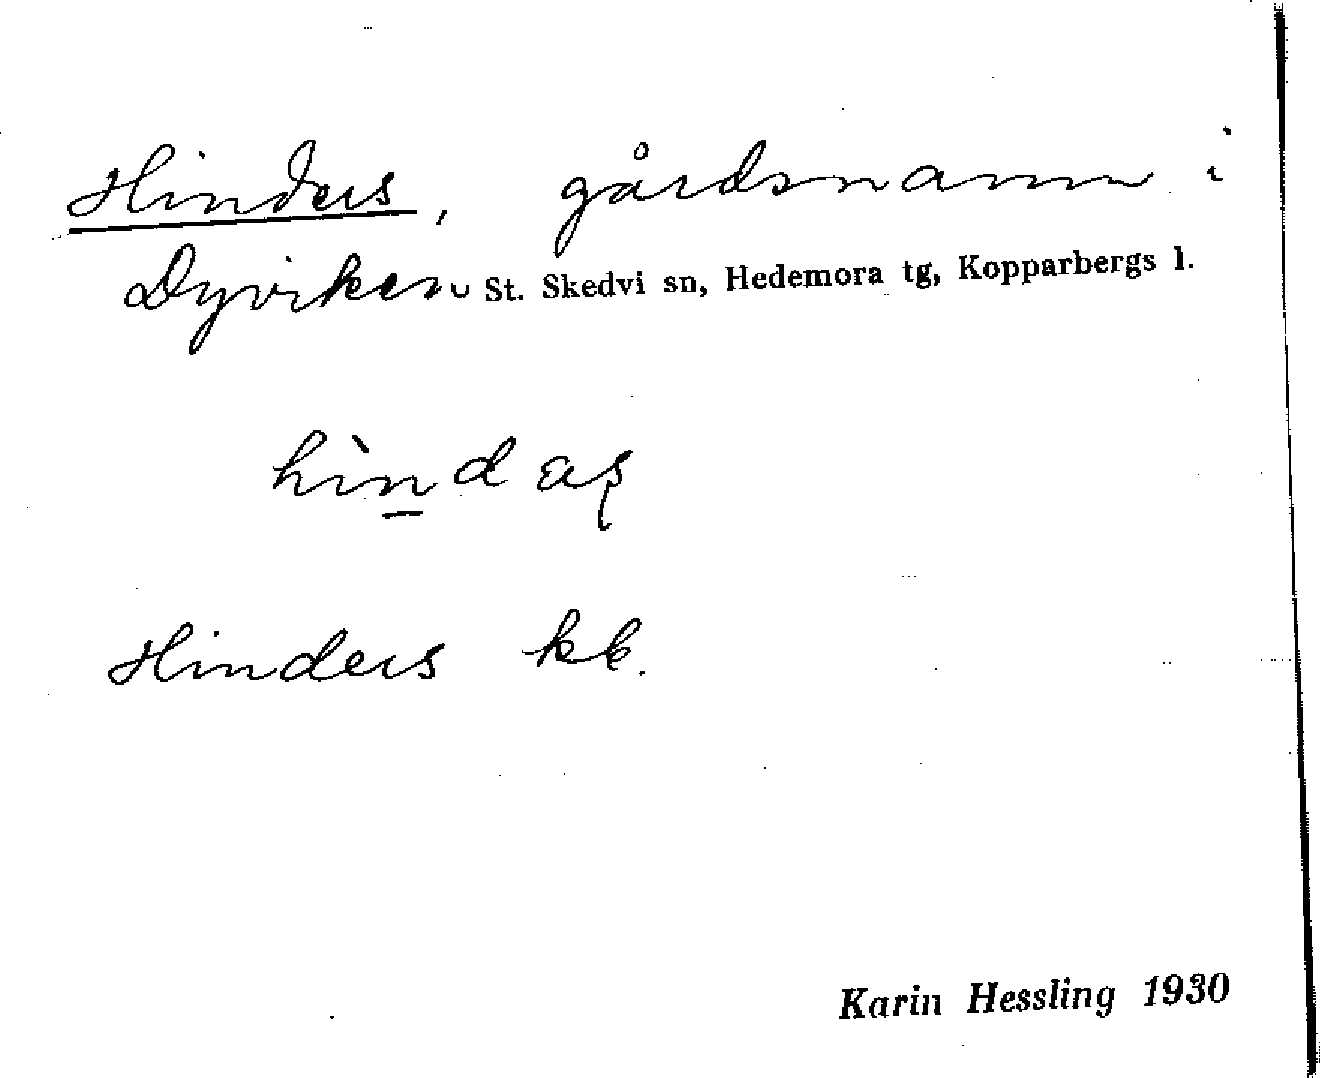 Hinders, gårdsnamn i
Dyviken St. Skedvi sn, Hedemora tg, Kopparbergs l.
hìn̲das̨
Hinders kb.
Karin Hessling 1930